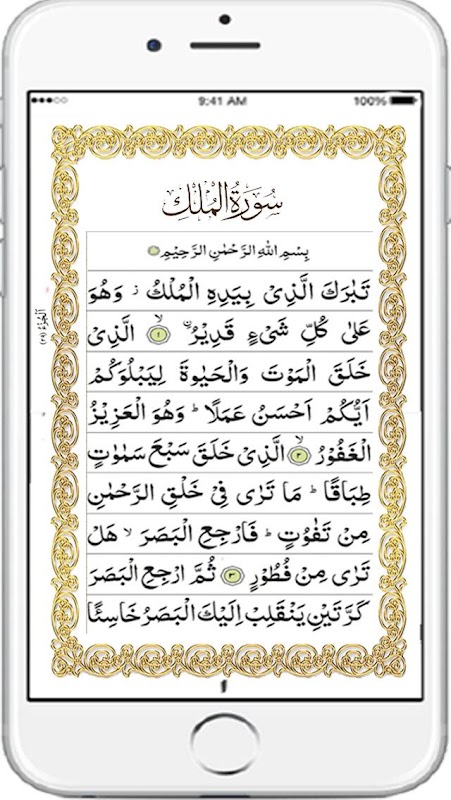 9:41 AM 100%
سُوْرَةُ الْمُلْكِ
بِسْمِ اللّٰهِ الرَّحْمٰنِ الرَّحِيْمِ
تَبٰرَكَ الَّذِىْ بِيَدِهِ الْمُلْكُ ز وَهُوَ
عَلٰى كُلِّ شَىْءٍ قَدِيْرُ ۙ ۨ ﴿۱﴾ الَّذِىْ
خَلَقَ الْمَوْتَ وَالْحَيٰوةَ لِيَبْلُوَكُمْ
اَيُّكُمْ اَحْسَنُ عَمَلًا ؕ وَهُوَ الْعَزِيْزُ
الْغَفُوْرُ ۙ ﴿۲﴾ الَّذِىْ خَلَقَ سَبْعَ سَمٰوٰتٍ
طِبَاقًا ؕ مَا تَرٰى فِىْ خَلْقِ الرَّحْمٰنِ
مِنْ تَفٰوُتٍ ؕ فَارْجِعِ الْبَصَرَ ۙ هَلْ
تَرٰى مِنْ فُطُوْرٍ ﴿۳﴾ ثُمَّ ارْجِعِ الْبَصَرَ
كَرَّتَيْنِ يَنْقَلِبْ اِلَيْكَ الْبَصَرُ خَاسِئًا
۱